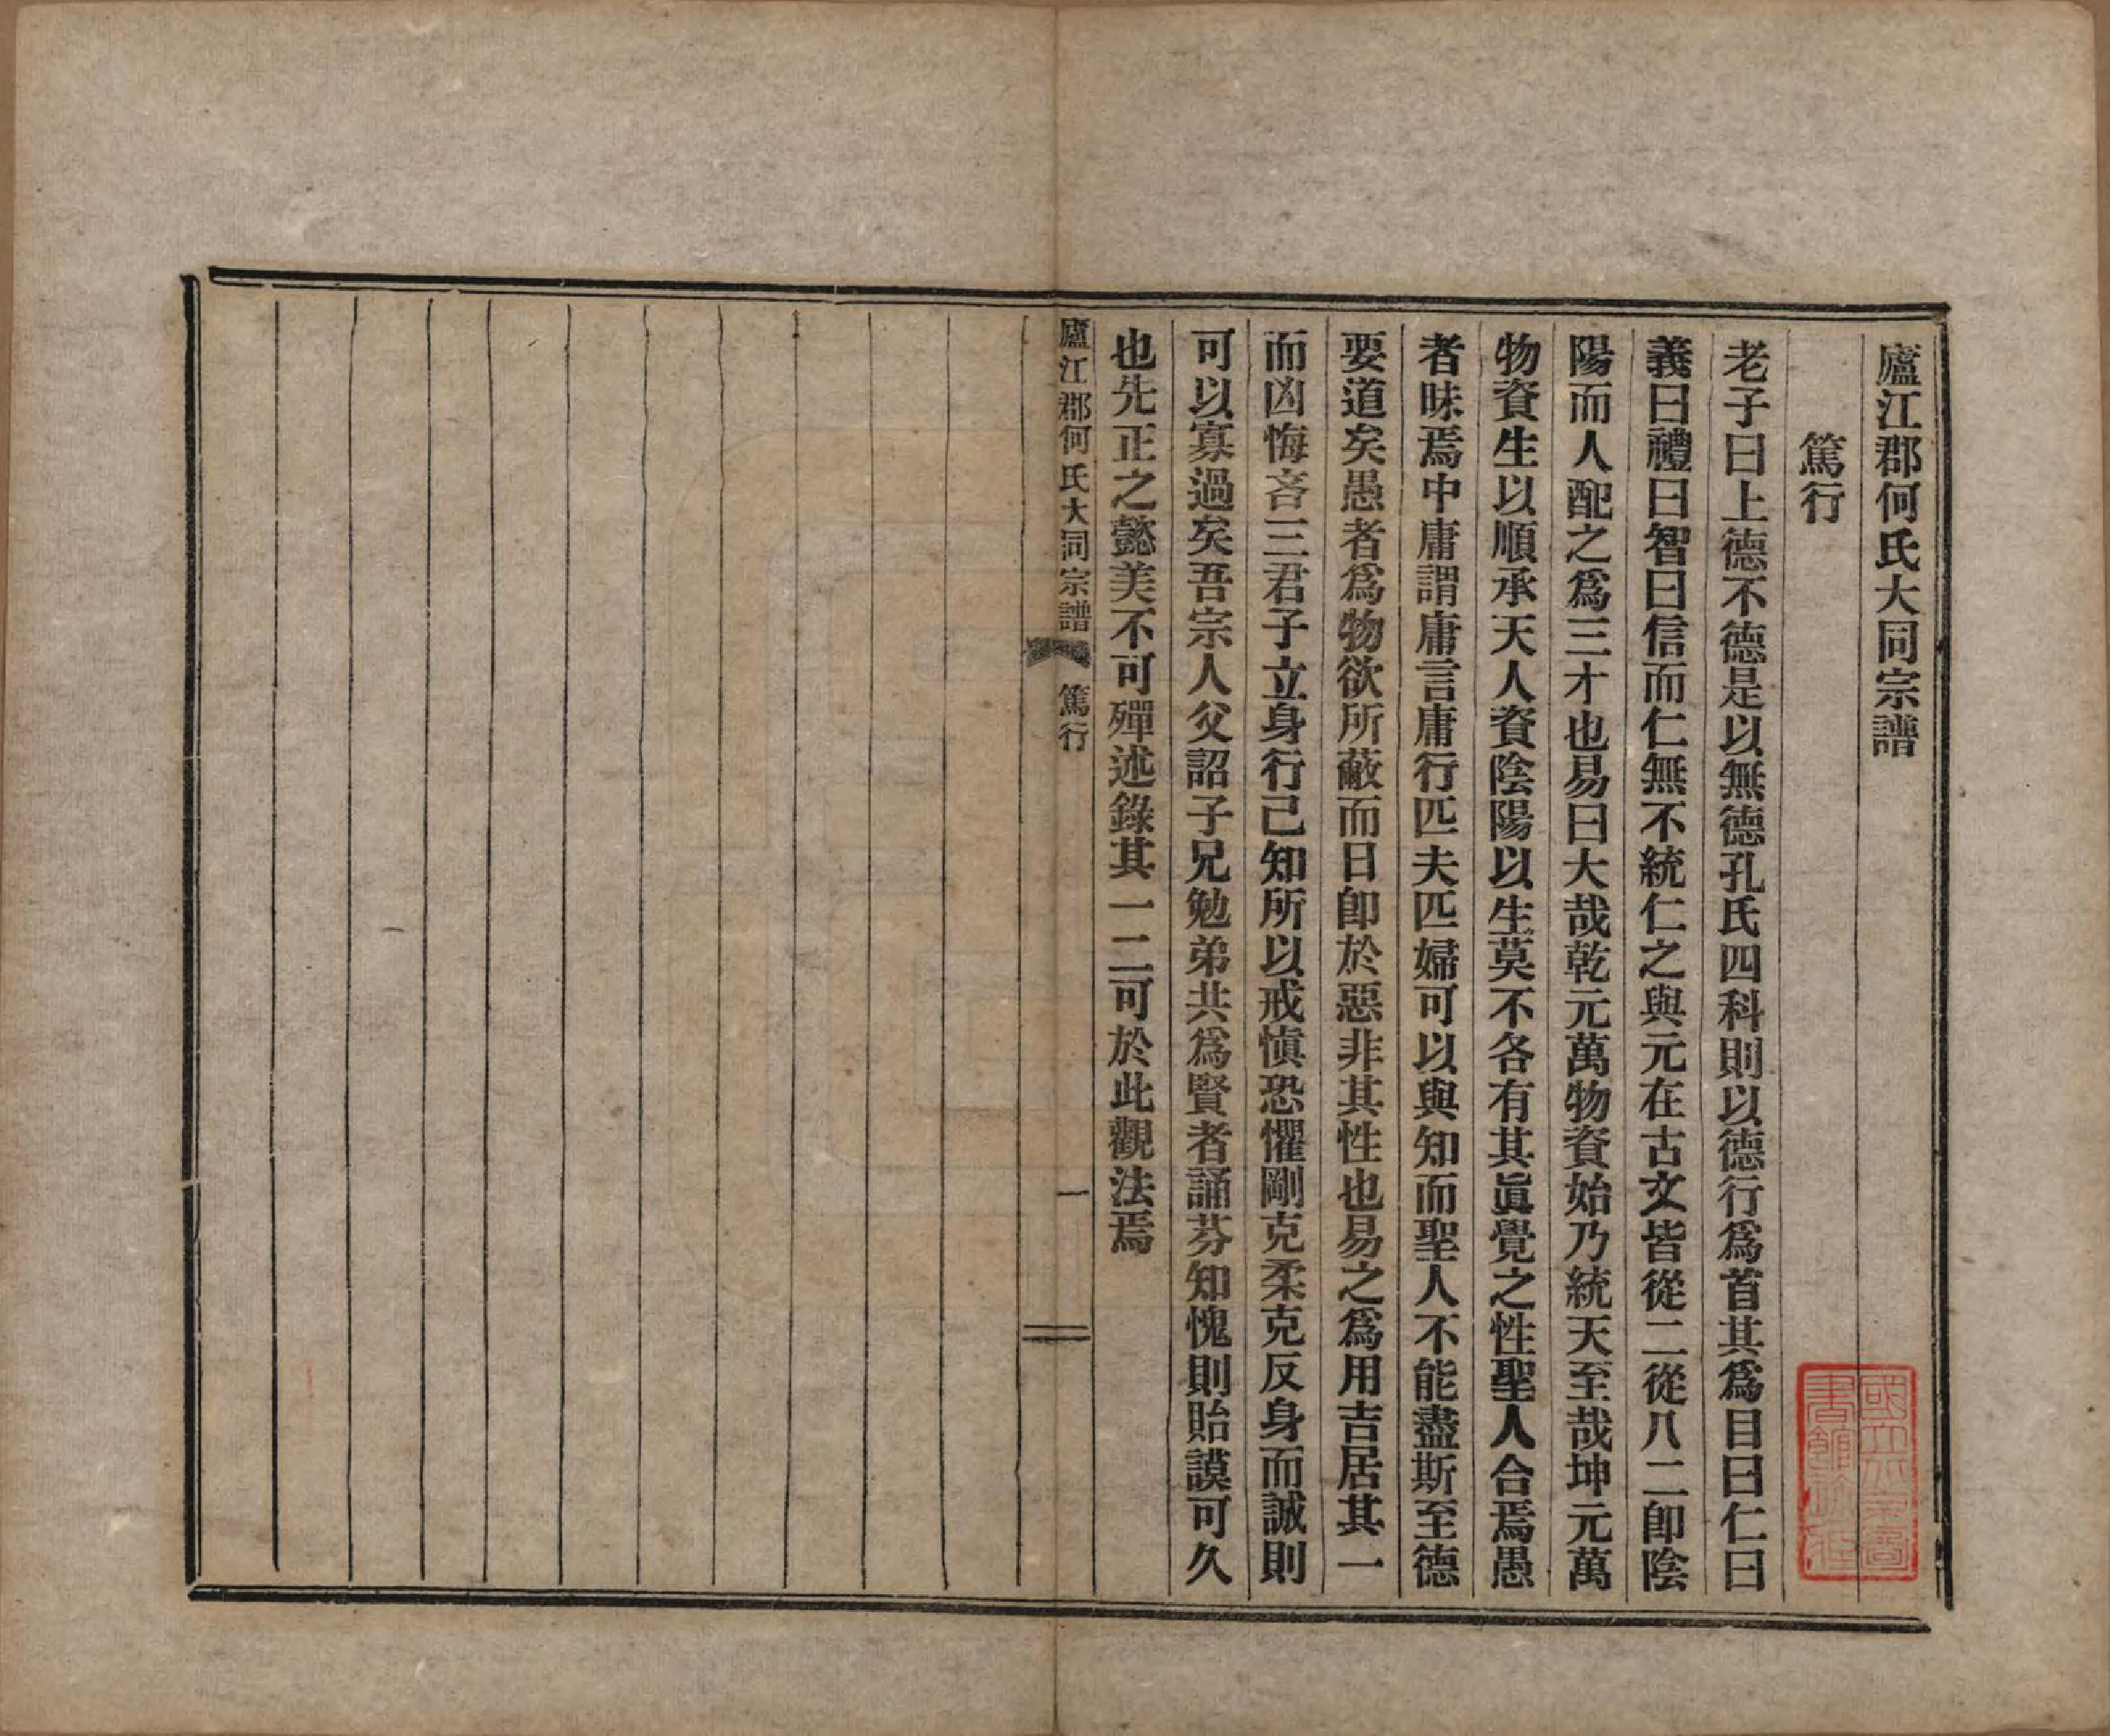 廬江郡何氏大同宗譜
篤行
老子曰上德不德是以無德孔氏四科則以德行爲首其爲目曰仁曰
義曰禮曰智曰信而仁無不統仁之與元在古文皆從二從八二卽陰
陽而人配之爲三才也易曰大哉乾元萬物資始乃統天至哉坤元萬
物資生以順承天人資陰陽以生莫不各有其眞覺之性聖人合焉愚
者昧焉中庸謂庸言庸行匹夫匹婦可以與知而聖人不能盡斯至德
要道矣愚者爲物欲所蔽而日卽於惡非其性也易之爲用吉居其一
而凶悔吝三君子立身行己知所以戒愼恐懼剛克柔克反身而誠則
可以寡過矣吾宗人父詔子兄勉弟共爲賢者誦芬知愧則貽謨可久
也先正之懿美不可殫述錄其一二可於此觀法焉
廬江郡何氏大同宗譜 篤行 一